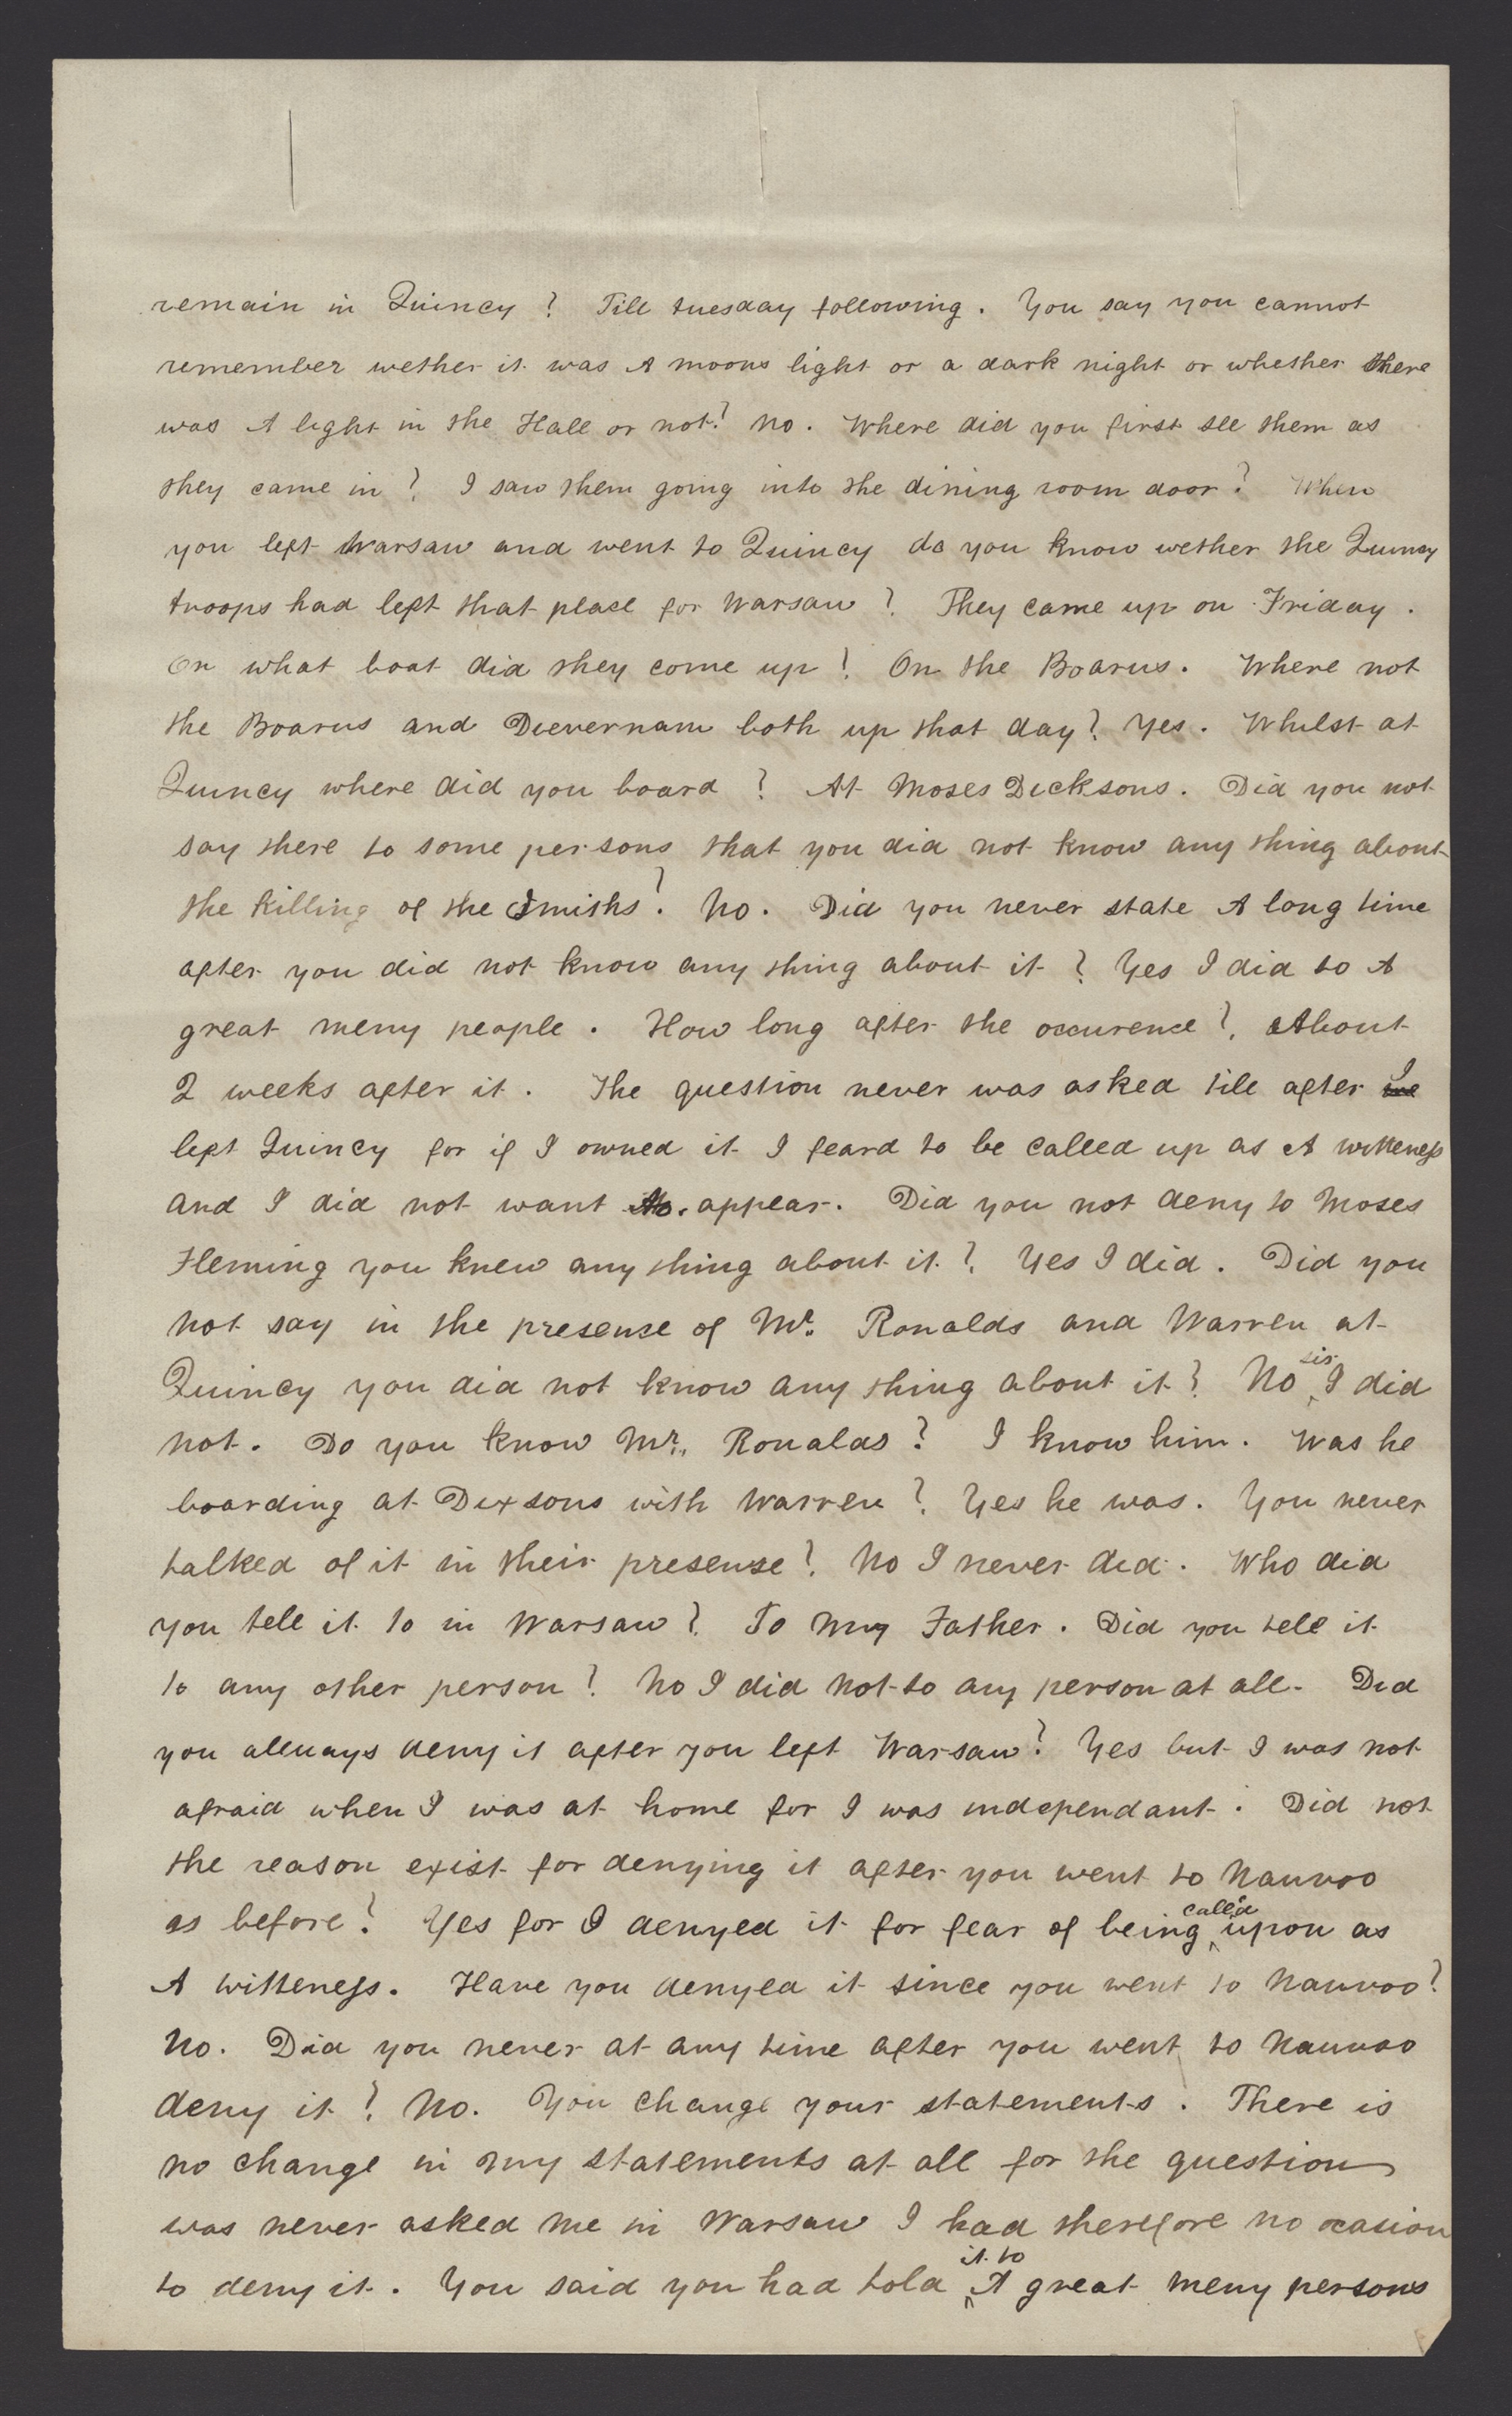 remain in Quincy ? Till tuesday following . You say you cannot
remember wether it was A moons light or a dark night or whether there
was A light in the Hall or not ? No . Where did you first see them as
they came in ? I saw them going into the dining room door ? When
you left Warsaw and went to Quincy do you know wether the Quincy
troops had left that place for Warsaw ? They came up on Friday .
On what boat did they come up ? On the Boarus . Where not
the Boarus and Dievernam both up that day ? Yes . Whilst at
Quincy where did you board ? At Moses Dicksons . Did you not
say there to some persons that you did not know any thing about
the killing of the Smiths ? No . Did you never state A long time
after you did not know any thing about it ? Yes I did to A
great meny people . How long after the occurence ? About
2 weeks after it . The question never was asked till after I
left Quincy for if I owned it I feard to be called up as A witteness
and I did not want to appear . Did you not deny to Moses
Fleming you knew any thing about it ? Yes I did . Did you
not say in the presense of Mr. Ronalds and Warren at
Quincy you did not know any thing about it ? No sir I did
not . Do you know Mr. Ronalds ? I know him . Was he
boarding at Dixsons with Warren ? Yes he was . You never
talked of it in their presense ? No I never did . Who did
you tell it to in Warsaw ? To my Father . Did you tell it
to any other person ? No I did not to any person at all . Did
you allways deny it after you left Warsaw ? Yes but I was not
afraid when I was at home for I was independant . Did not
the reason exist for denying it after you went to Nauvoo
as before ? Yes for I denyed it for fear of being called upon as
A witteness . Have you denyed it since you went to Nauvoo ?
No . Did you never at any time after you went to Nauvoo
deny it ? No . You change your statements . There is
no change in my statements at all for the question
was never asked me in Warsaw I had therefore no ocasion
to deny it . You said you had told it to A great meny persons